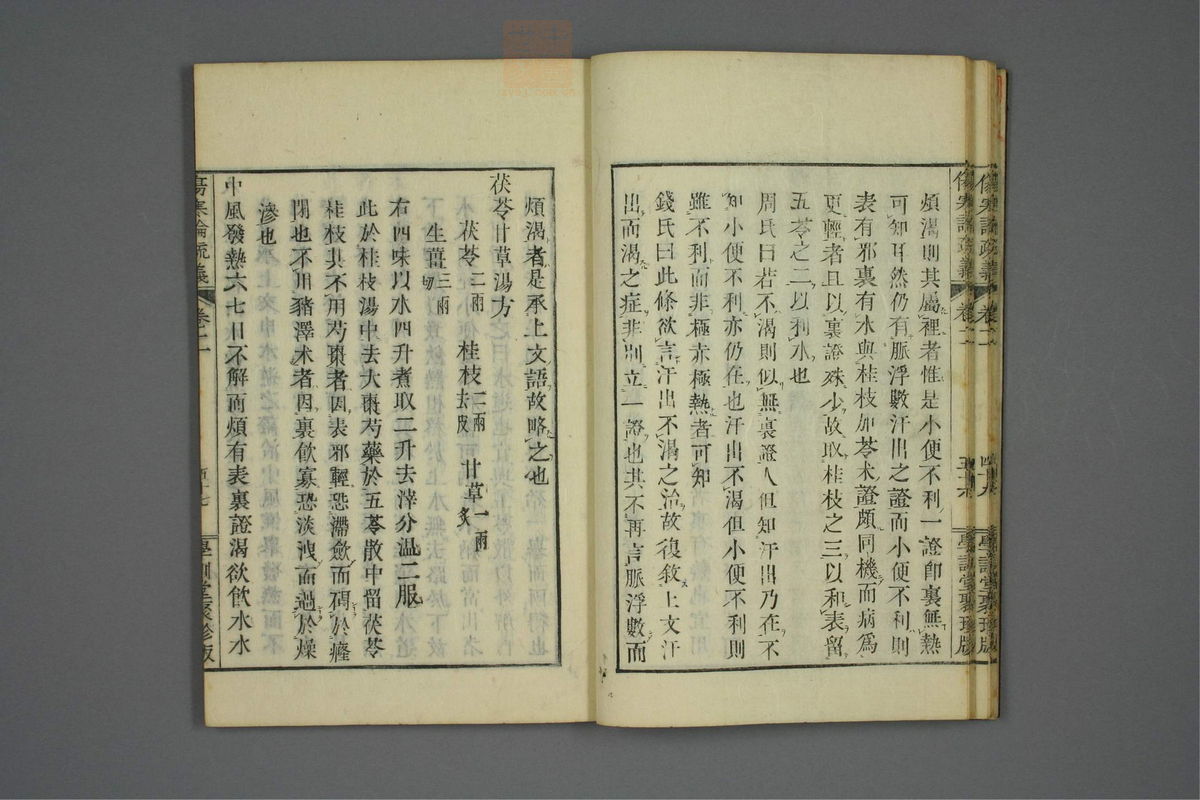 傷寒論疏義
卷二
學訓堂聚珍版
煩渴則其屬裡者惟是小便不利一證卽裏無熱
可知耳然仍有脈浮數汗出之證而小便不利則
表有邪裏有水與桂枝加苓朮證頗同機而病爲
更輕者且以裏證殊少故取桂枝之三以和表留
五苓之二以利水也
周氏曰若不渴則似無裏證人但知汗出乃在不
知小便不利亦仍在也汗出不渴但小便不利則
雖不利而非極赤極熱者可知
錢氏曰此條欲言汗出不渴之治故復敘上文汗
出而渴之症非別立一證也其不再言脈浮數而
煩渴者是承上文語故略之也
茯苓甘草湯方
茯苓二兩 桂枝二兩去皮 甘草一兩炙
生薑三兩切
右四味以水四升煮取二升去滓分溫三服
此於桂枝湯中去大棗芍藥於五苓散中留茯苓
桂枝其不用芍棗者因表邪輕恐滯斂而碍於癃
閉也不用豬澤朮者因裏飮寡恐淡洩而過於燥
滲也
中風發熱六七日不解而煩有表裏證渴欲飮水水
傷寒論疏義
卷二
學訓堂聚珍版